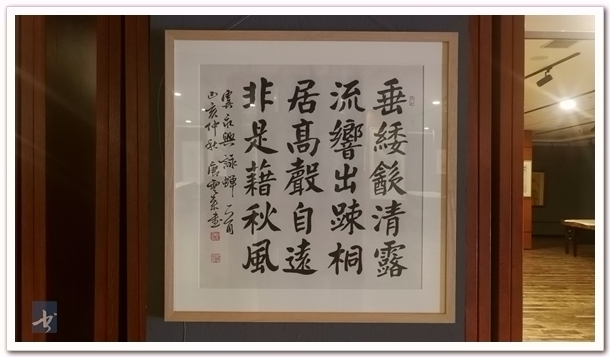 垂緌飲清露
流響出踈桐
居高聲自遠
非是藉秋風
虞永興詠蟬一首
己亥仲秋